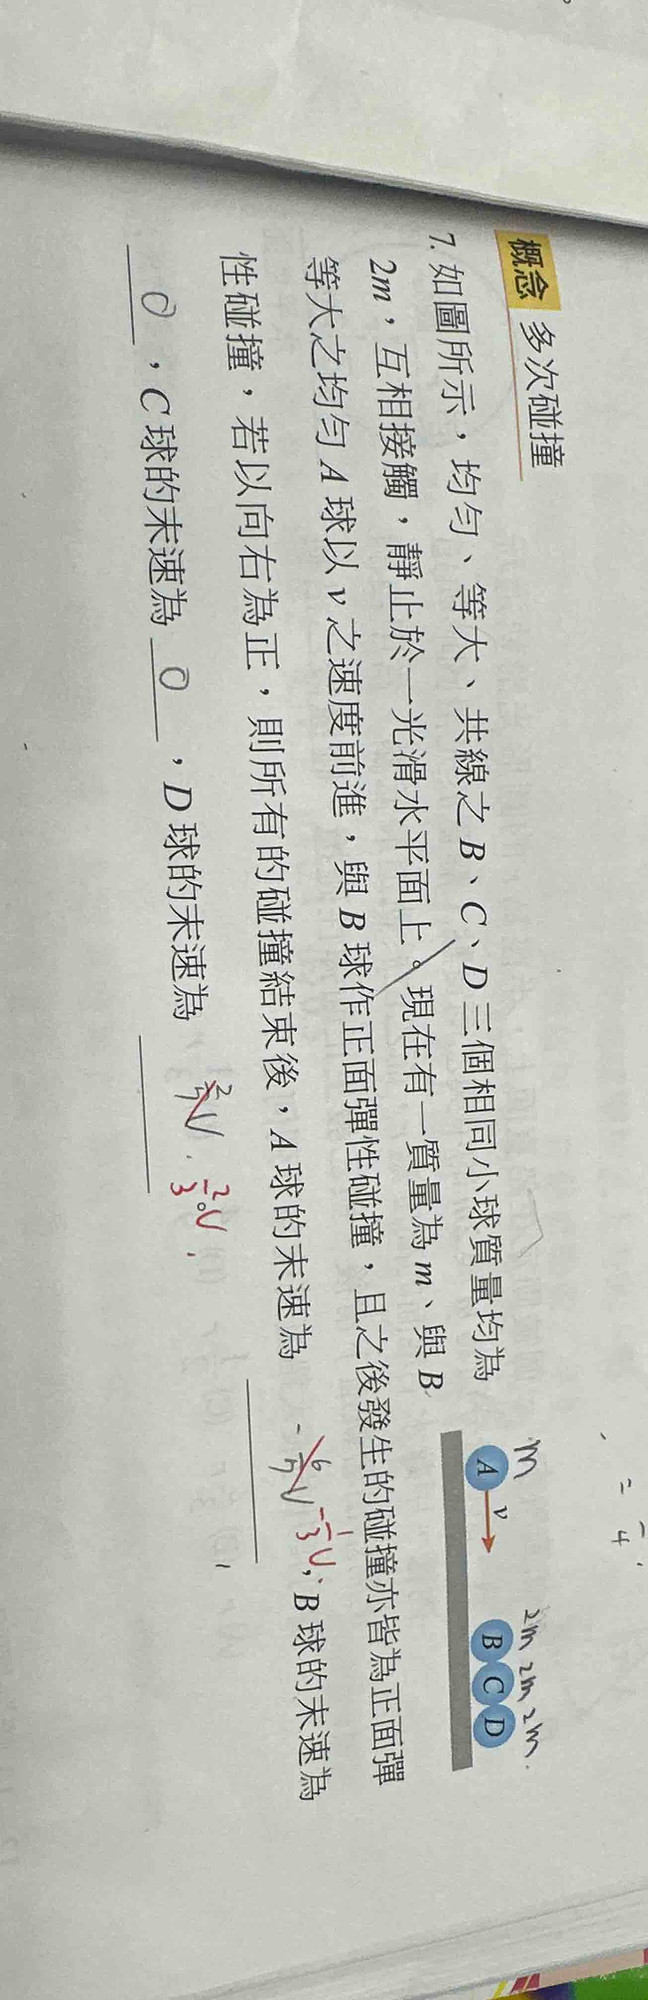 概念 多次碰撞
7. 如圖所示,均勻、等大、共線之 B、C、D 三個相同小球質量均為
2m,互相接觸,靜止於一光滑水平面上。現在有一質量為 m、與 B
等大之均勻 A 球以 v 之速度前進,與 B 球作正面彈性碰撞,且之後發生的碰撞亦皆為正面彈
性碰撞,若以向右為正,則所有的碰撞結束後,A 球的末速為 -1/3 v,B 球的末速為
0,C 球的末速為 0,D 球的末速為 2/3 v
m
2m 2m 2m
v
A
B C D